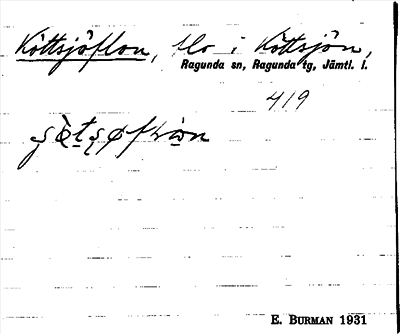 Köttsjöflon, flo i Köttsjön,
Ragunda sn, Ragunda tg, Jämtl. l.
4/9
E. BURMAN 1931